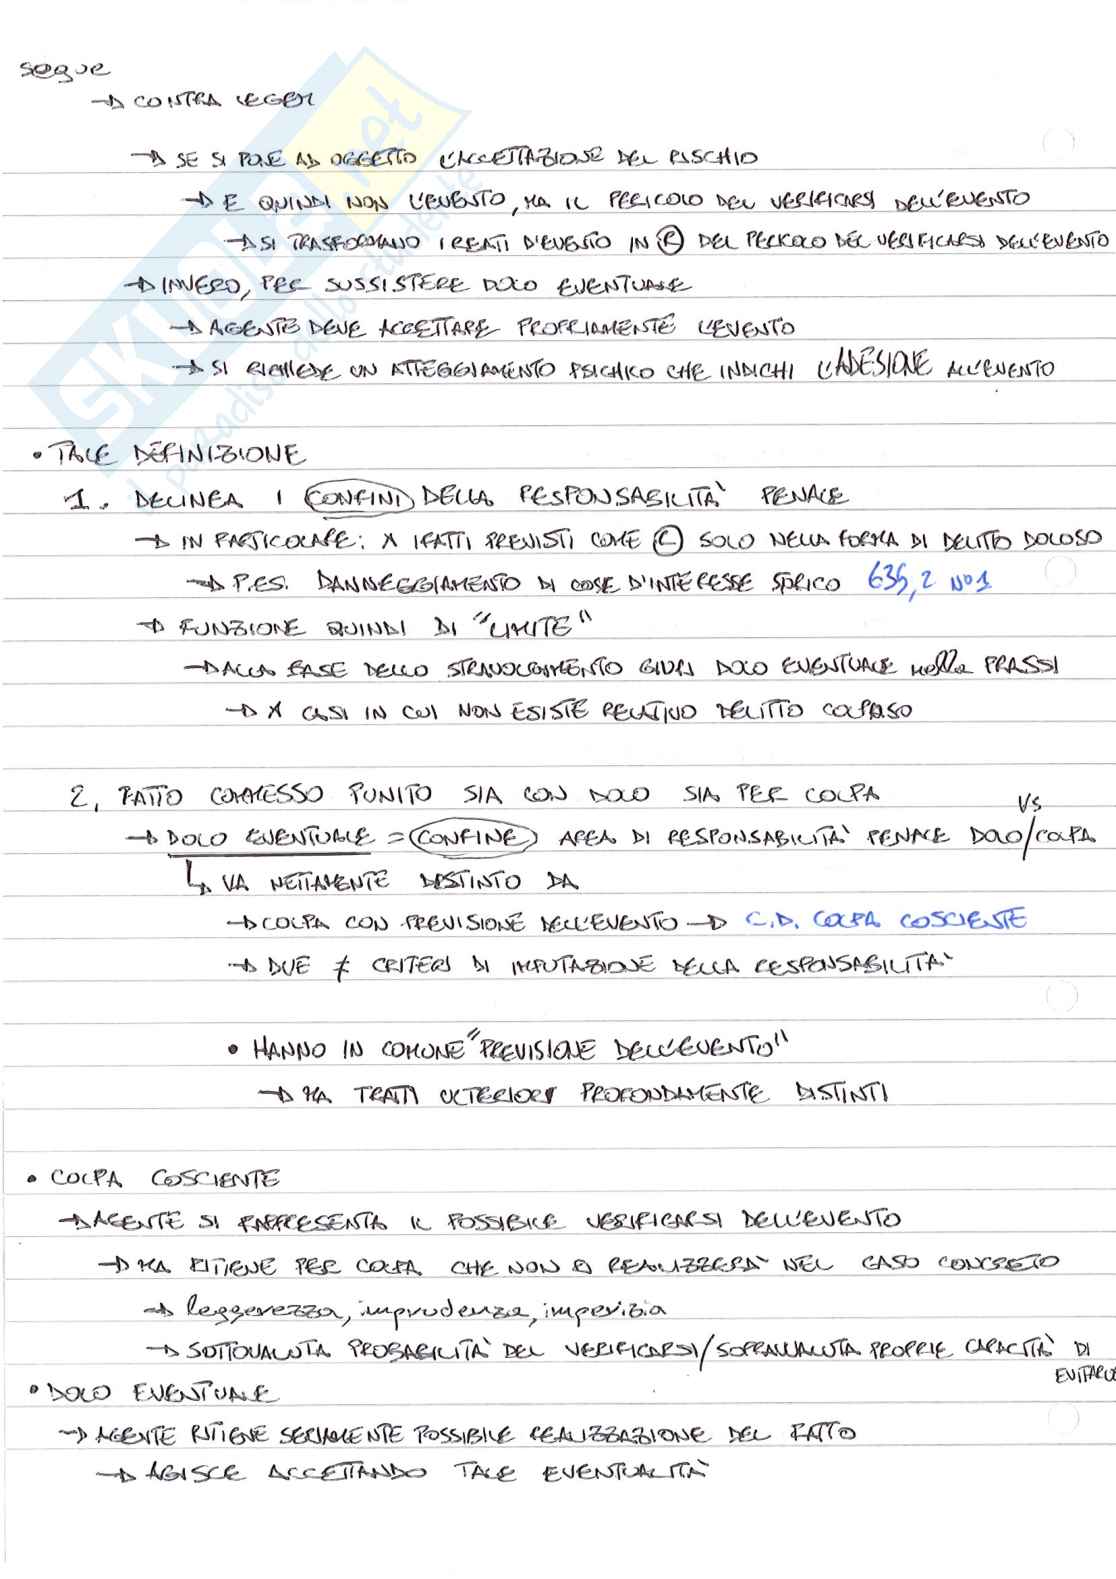 segue
→ CONTRA LEGEM
→ SE SI PONE AD OGGETTO L'ACCETTAZIONE DEL RISCHIO
→ E QUINDI NON L'EVENTO, MA IL PERICOLO DEL VERIFICARSI DELL'EVENTO
→ SI TRASFORMANO I REATI D'EVENTO IN Ⓡ DEL PERICOLO DEL VERIFICARSI DELL'EVENTO
→ INVERO, PER SUSSISTERE DOLO EVENTUALE
→ AGENTE DEVE ACCETTARE PROPRIAMENTE L'EVENTO
→ SI RICHIEDE UN ATTEGGIAMENTO PSICHICO CHE INDICHI L'ADESIONE ALL'EVENTO
SKUOLA.net
il paradiso dello studente
• TALE DEFINIZIONE
1. DELINEA I CONFINI DELLA RESPONSABILITÀ PENALE
→ IN PARTICOLARE: X I FATTI PREVISTI COME SOLO NELLA FORMA DI DELITTO DOLOSO
→ P.ES. DANNEGGIAMENTO DI COSE D'INTERESSE STORICO 635, 2 N°1
→ FUNZIONE QUINDI DI "LIMITE"
→ ALLA BASE DELLO STRAVOLGIMENTO GIURI DOLO EVENTUALE nella PRASSI
→ X CASI IN CUI NON ESISTE RELATIVO DELITTO COLPOSO
2. FATTO COMMESSO PUNITO SIA CON DOLO SIA PER COLPA
→ DOLO EVENTUALE = CONFINE AREA DI RESPONSABILITÀ PENALE DOLO/COLPA
VS
↳ VA NETTAMENTE DISTINTO DA
→ COLPA CON PREVISIONE DELL'EVENTO → C.D. COLPA COSCIENTE
→ DUE ≠ CRITERI DI IMPUTAZIONE DELLA RESPONSABILITÀ
• HANNO IN COMUNE "PREVISIONE DELL'EVENTO"
→ MA TRATTI ULTERIORI PROFONDAMENTE DISTINTI
• COLPA COSCIENTE
→ AGENTE SI RAPPRESENTA IL POSSIBILE VERIFICARSI DELL'EVENTO
→ MA RITIENE PER COLPA CHE NON SI REALIZZERÀ NEL CASO CONCRETO
→ leggerezza, imprudenza, imperizia
→ SOTTOVALUTA PROBABILITÀ DEL VERIFICARSI/SOPRAVVALUTA PROPRIE CAPACITÀ DI EVITARLO
• DOLO EVENTUALE
→ AGENTE RITIENE SERIAMENTE POSSIBILE REALIZZAZIONE DEL FATTO
→ AGISCE ACCETTANDO TALE EVENTUALITÀ